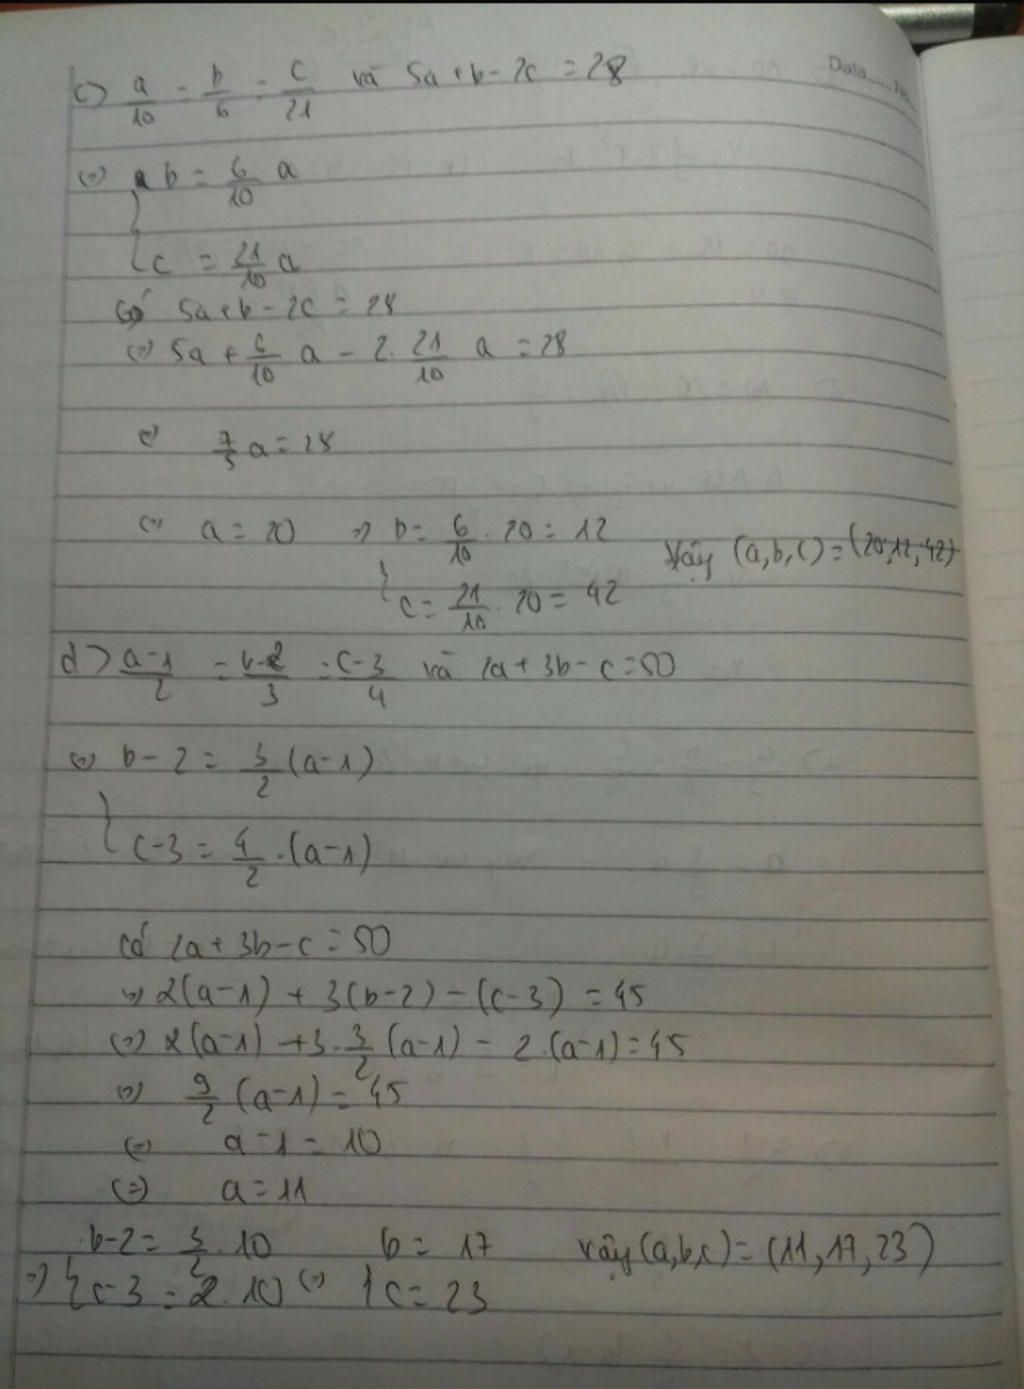 Data......No...
c) a/10 = b/6 = c/21 và 5a+b-2c=28
(=) b = 6/10 a
{ c = 21/10 a
Có 5a+b-2c=28
(=) 5a + 6/10 a - 2. 21/10 a = 28
(=) 7/5 a = 28
(=) a = 20 => b = 6/10 . 20 = 12
{ c = 21/10 . 20 = 42
Vậy (a,b,c)=(20,12,42)
d) a-1/2 = b-2/3 = c-3/4 và 2a+3b-c=50
(=) b-2 = 3/2 (a-1)
{ c-3 = 4/2 .(a-1)
Có 2a+3b-c=50
(=) 2(a-1) + 3(b-2) - (c-3) = 45
(=) 2(a-1) + 3. 3/2 (a-1) - 2.(a-1) = 45
(=) 9/2 (a-1) = 45
(=) a-1 = 10
(=) a = 11
b-2 = 3/2 . 10 b = 17 vậy (a,b,c) = (11,17,23)
=) { c-3 = 2.10 (=) { c = 23